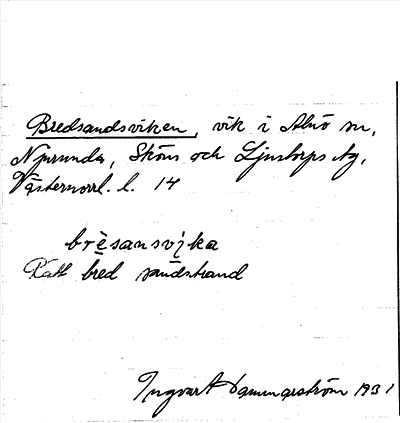 Bredsandsviken, vik i Alnö sn,
Njurunda, Sköns och Ljustorps tg,
Västernorrl. l. 14
brèsansvika
Rätt bred sandstrand
Ingvar Hammarström 1931